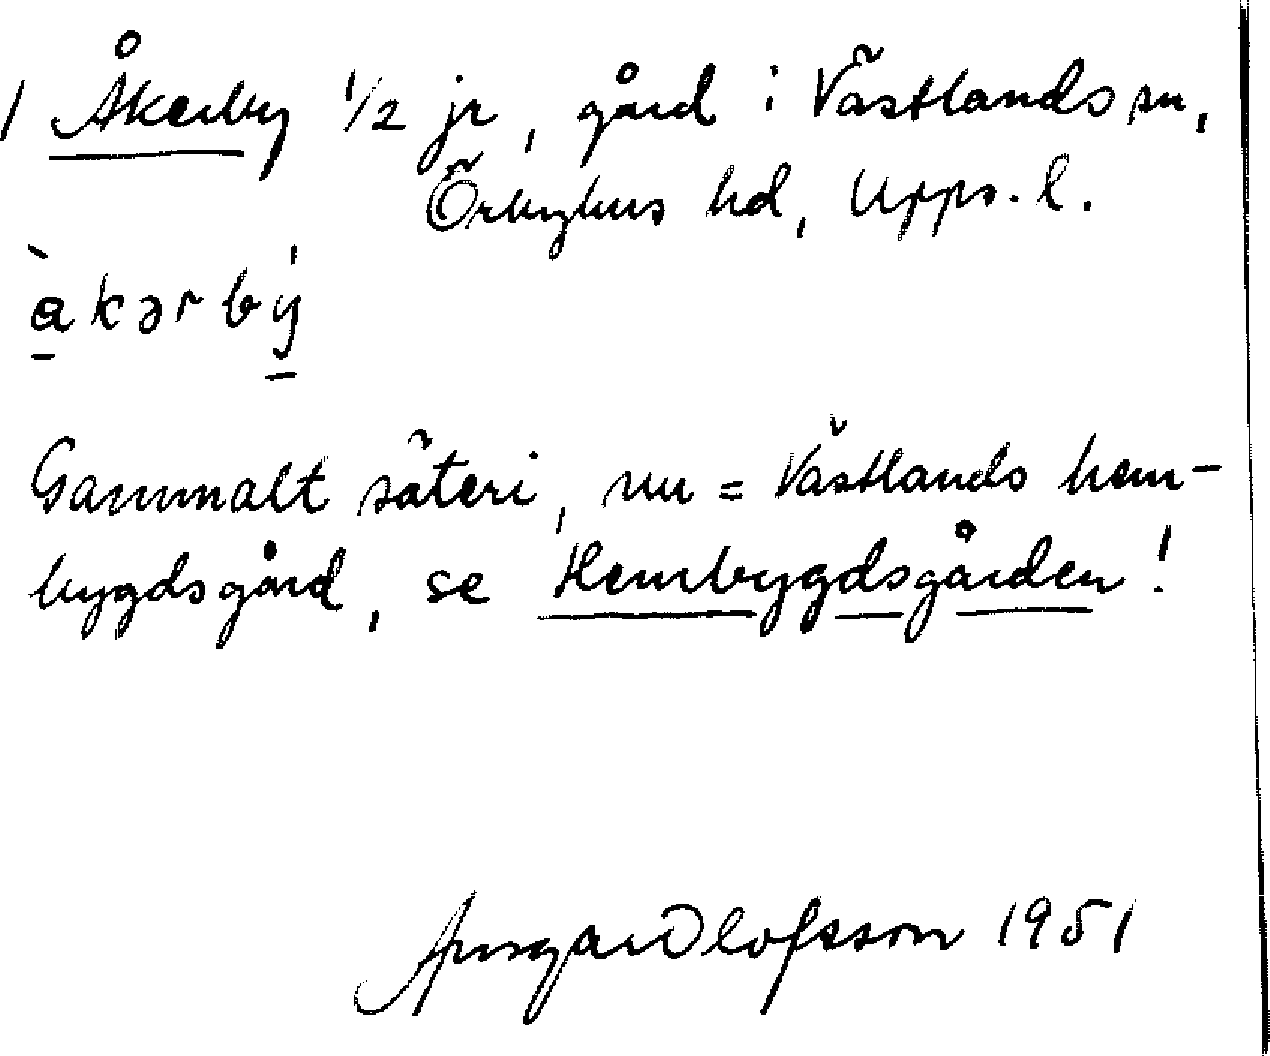 1 Åkerby 1/2 jr, gård i Västlands sn,
Örbyhus hd, Upps. l.
àkərbý
Gammalt säteri, nu = Västlands hem-
bygdsgård, se Hembygdsgården!
Ansgar Olofsson 1951